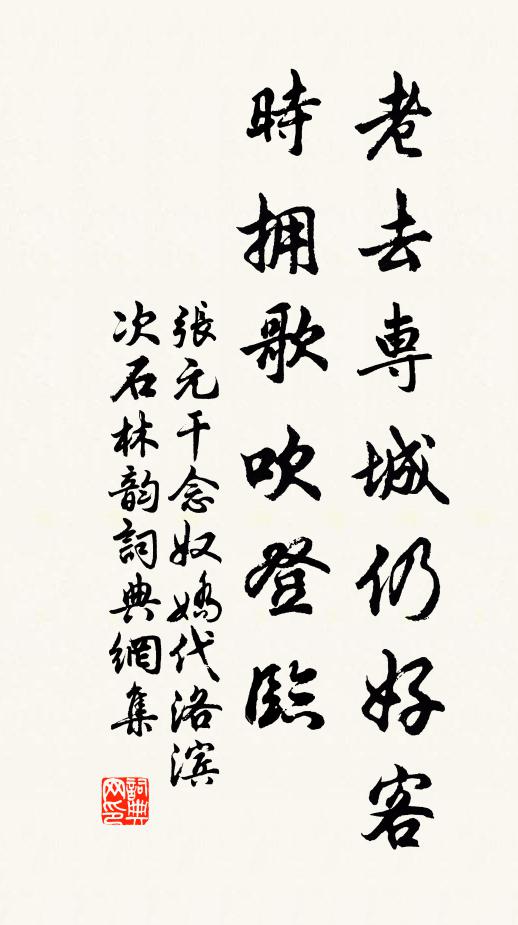 老去専城仍好客
時拥歌吹登臨
張元干念奴嬌代洛滨
次石林韵詞典網集
詞典
网印